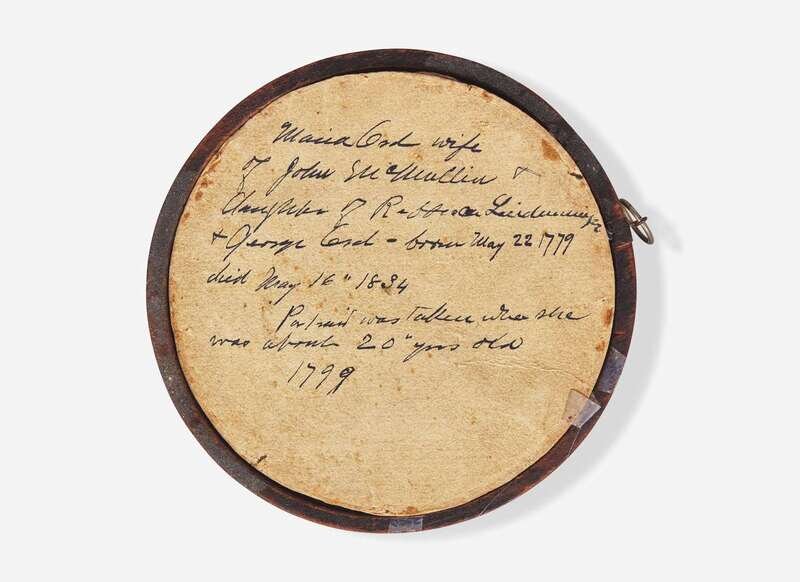 Maria Esd wife
of John McMullin &
daughter of Rebecca
& George Esd - born May 22 1779
died May 16" 1834
Portrait was taken when she
was about 20" yrs old
1799